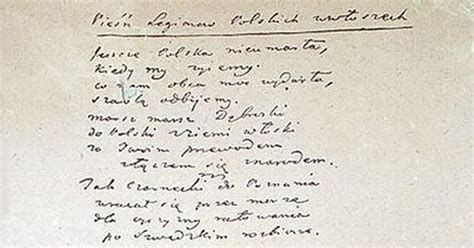 Pieśń Legionow Polskich we włoszech
Jeszcze Polska nieumarła,
kiedy my żyiemy.
co nam obca moc wydarła,
szablą odbijemy.
marsz marsz Dąbrski
do Polski z ziemi włoski
za Twoim przewodem
złączem się z narodem.
Jak Czarnecki do Poznania
wracał się przez morze
dla oyczyzny ratowania
po Szwedzkim rozbiorze.